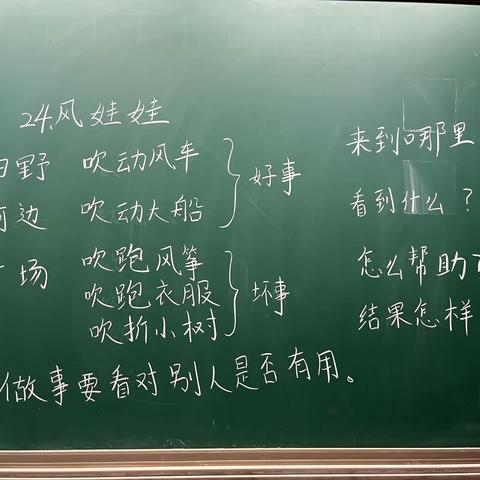 24.风娃娃
野 吹动风车
好事
边 吹动大船
场 吹跑风筝
吹跑衣服
坏事
吹折小树
做事要看对别人是否有用。
来到哪里
看到什么？
怎么帮助
结果怎样